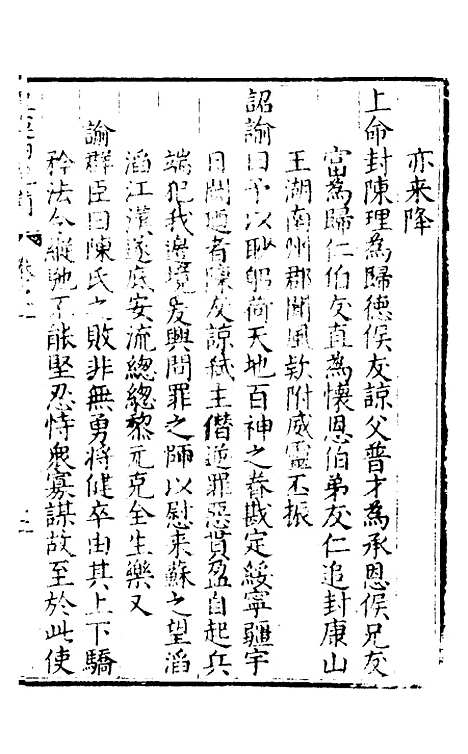 亦来降
上命封陳理為歸德侯友諒父普才為承恩侯兄友
富為歸仁伯友直為懷恩伯弟友仁追封康山
王湖南州郡聞風欵附威靈丕振
詔諭曰予以眇躬荷天地百神之眷戡定綏寧疆宇
日闢廼者陳友諒弑主僣逆罪惡貫盈自起兵
端犯我邊境爰興問罪之師以慰来蘇之望滔
滔江漢遂底安流總總黎元克全生樂又
諭群臣曰陳氏之敗非無勇将健卒由其上下驕
矜法令縱弛不能堅忍恃衆寡謀故至於此使